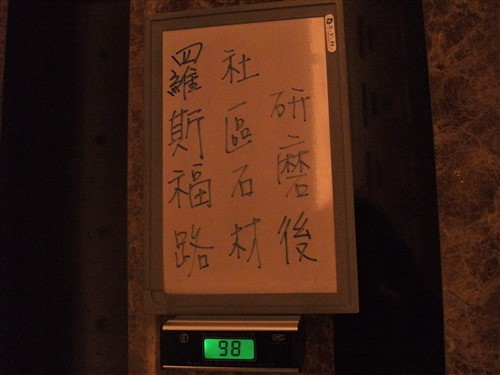 羅斯福路
社區石材
研磨後
98